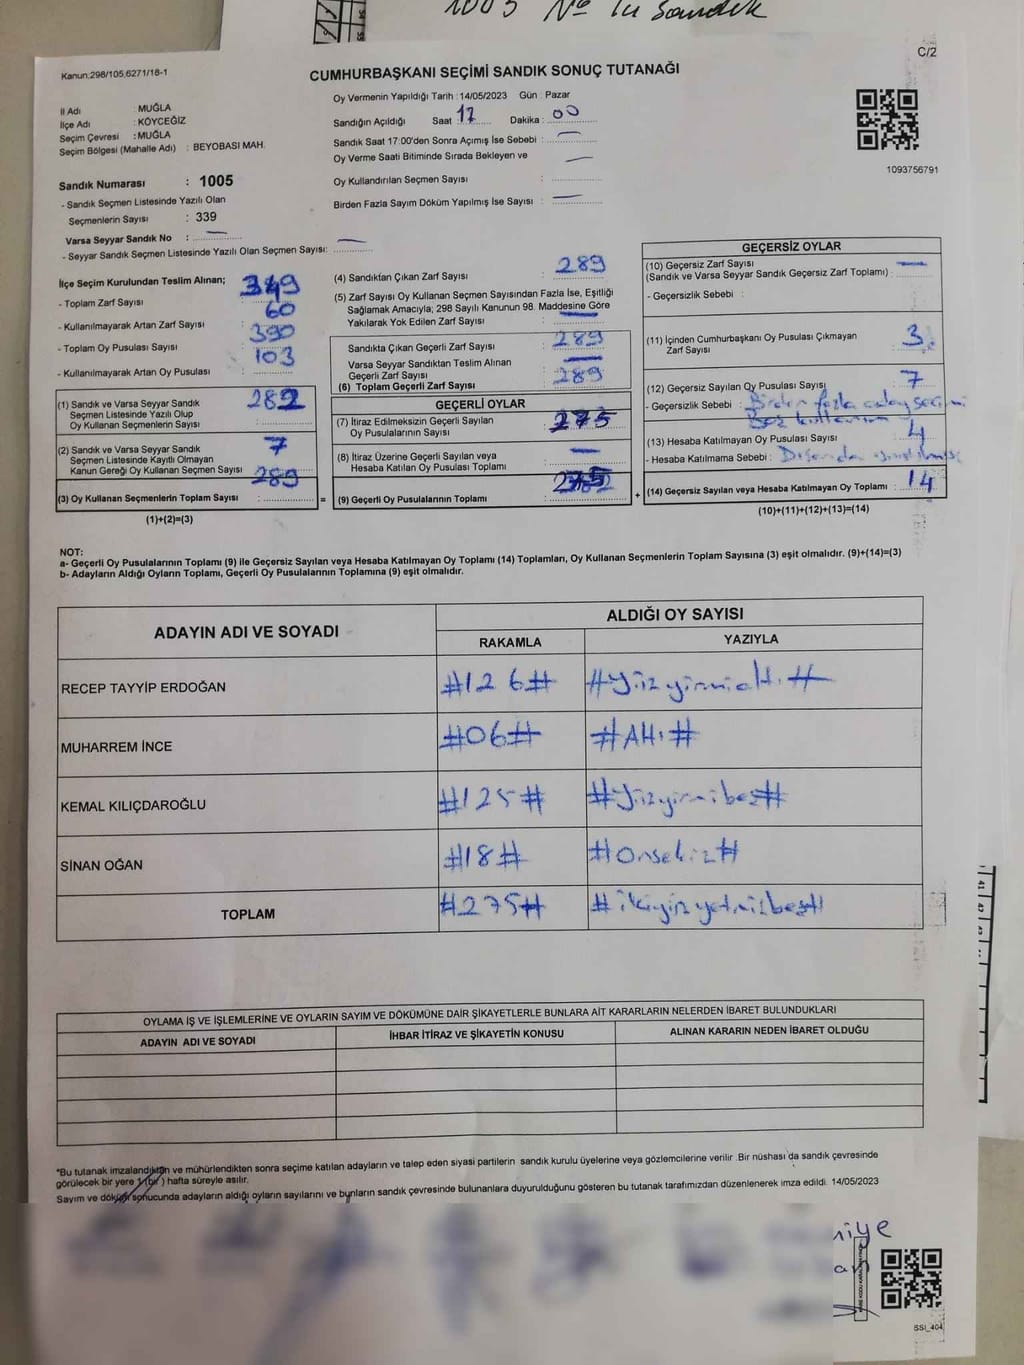 1005 No lu sandık
C/2
Kanun:298/105,6271/18-1
CUMHURBAŞKANI SEÇİMİ SANDIK SONUÇ TUTANAĞI
İl Adı : MUĞLA
İlçe Adı : KÖYCEĞİZ
Seçim Çevresi : MUĞLA
Seçim Bölgesi (Mahalle Adı) : BEYOBASI MAH.
Sandık Numarası : 1005
- Sandık Seçmen Listesinde Yazılı Olan
Seçmenlerin Sayısı : 339
Varsa Seyyar Sandık No : —
- Seyyar Sandık Seçmen Listesinde Yazılı Olan Seçmen Sayısı: —
Oy Vermenin Yapıldığı Tarih : 14/05/2023 Gün : Pazar
Sandığın Açıldığı Saat : 17 Dakika : 00
Sandık Saat 17:00'den Sonra Açımış İse Sebebi : —
Oy Verme Saati Bitiminde Sırada Bekleyen ve —
Oy Kullandırılan Seçmen Sayısı :
Birden Fazla Sayım Döküm Yapılmış İse Sayısı : —
1093756791
İlçe Seçim Kurulundan Teslim Alınan;
- Toplam Zarf Sayısı : 349
- Kullanılmayarak Artan Zarf Sayısı : 60
- Toplam Oy Pusulası Sayısı : 390
- Kullanılmayarak Artan Oy Pusulası : 103
(1) Sandık ve Varsa Seyyar Sandık 282
Seçmen Listesinde Yazılı Olup
Oy Kullanan Seçmenlerin Sayısı :
(2) Sandık ve Varsa Seyyar Sandık 7
Seçmen Listesinde Kayıtlı Olmayan
Kanun Gereği Oy Kullanan Seçmen Sayısı :
(3) Oy Kullanan Seçmenlerin Toplam Sayısı : 289
(1)+(2)=(3)
(4) Sandıktan Çıkan Zarf Sayısı : 289
(5) Zarf Sayısı Oy Kullanan Seçmen Sayısından Fazla İse, Eşitliği
Sağlamak Amacıyla; 298 Sayılı Kanunun 98. Maddesine Göre
Yakılarak Yok Edilen Zarf Sayısı : —
Sandıkta Çıkan Geçerli Zarf Sayısı : 289
Varsa Seyyar Sandıktan Teslim Alınan
Geçerli Zarf Sayısı : —
(6) Toplam Geçerli Zarf Sayısı : 289
GEÇERLİ OYLAR
(7) İtiraz Edilmeksizin Geçerli Sayılan
Oy Pusulalarının Sayısı : 275
(8) İtiraz Üzerine Geçerli Sayılan veya
Hesaba Katılan Oy Pusulası Toplamı : —
= (9) Geçerli Oy Pusulalarının Toplamı : 275 +
GEÇERSİZ OYLAR
(10) Geçersiz Zarf Sayısı —
(Sandık ve Varsa Seyyar Sandık Geçersiz Zarf Toplamı) :
- Geçersizlik Sebebi :
(11) İçinden Cumhurbaşkanı Oy Pusulası Çıkmayan
Zarf Sayısı : 3
(12) Geçersiz Sayılan Oy Pusulası Sayısı : 7
- Geçersizlik Sebebi : Birden fazla aday seçimi
(13) Hesaba Katılmayan Oy Pusulası Sayısı : 4
- Hesaba Katılmama Sebebi :
(14) Geçersiz Sayılan veya Hesaba Katılmayan Oy Toplamı : 14
(10)+(11)+(12)+(13)=(14)
NOT:
a- Geçerli Oy Pusulalarının Toplamı (9) ile Geçersiz Sayılan veya Hesaba Katılmayan Oy Toplamı (14) Toplamları, Oy Kullanan Seçmenlerin Toplam Sayısına (3) eşit olmalıdır. (9)+(14)=(3)
b- Adayların Aldığı Oyların Toplamı, Geçerli Oy Pusulalarının Toplamına (9) eşit olmalıdır.
ADAYIN ADI VE SOYADI
ALDIĞI OY SAYISI
RAKAMLA YAZIYLA
RECEP TAYYİP ERDOĞAN #126# #Yüzyirmialtı#
MUHARREM İNCE #06# #Altı#
KEMAL KILIÇDAROĞLU #125# #Yüzyirmibeş#
SİNAN OĞAN #18# #Onsekiz#
TOPLAM #275# #ikiyüzyetmişbeş#
OYLAMA İŞ VE İŞLEMLERİNE VE OYLARIN SAYIM VE DÖKÜMÜNE DAİR ŞİKAYETLERLE BUNLARA AİT KARARLARIN NELERDEN İBARET BULUNDUKLARI
ADAYIN ADI VE SOYADI İHBAR İTİRAZ VE ŞİKAYETİN KONUSU ALINAN KARARIN NEDEN İBARET OLDUĞU
*Bu tutanak imzalandıktan ve mühürlendikten sonra seçime katılan adayların ve talep eden siyasi partilerin sandık kurulu üyelerine veya gözlemcilerine verilir .Bir nüshası da sandık çevresinde
görülecek bir yere 1 (bir ) hafta süreyle asılır.
Sayım ve döküm sonucunda adayların aldığı oyların sayılarını ve bunların sandık çevresinde bulunanlara duyurulduğunu gösteren bu tutanak tarafımızdan düzenlenerek imza edildi. 14/05/2023
SSI_404